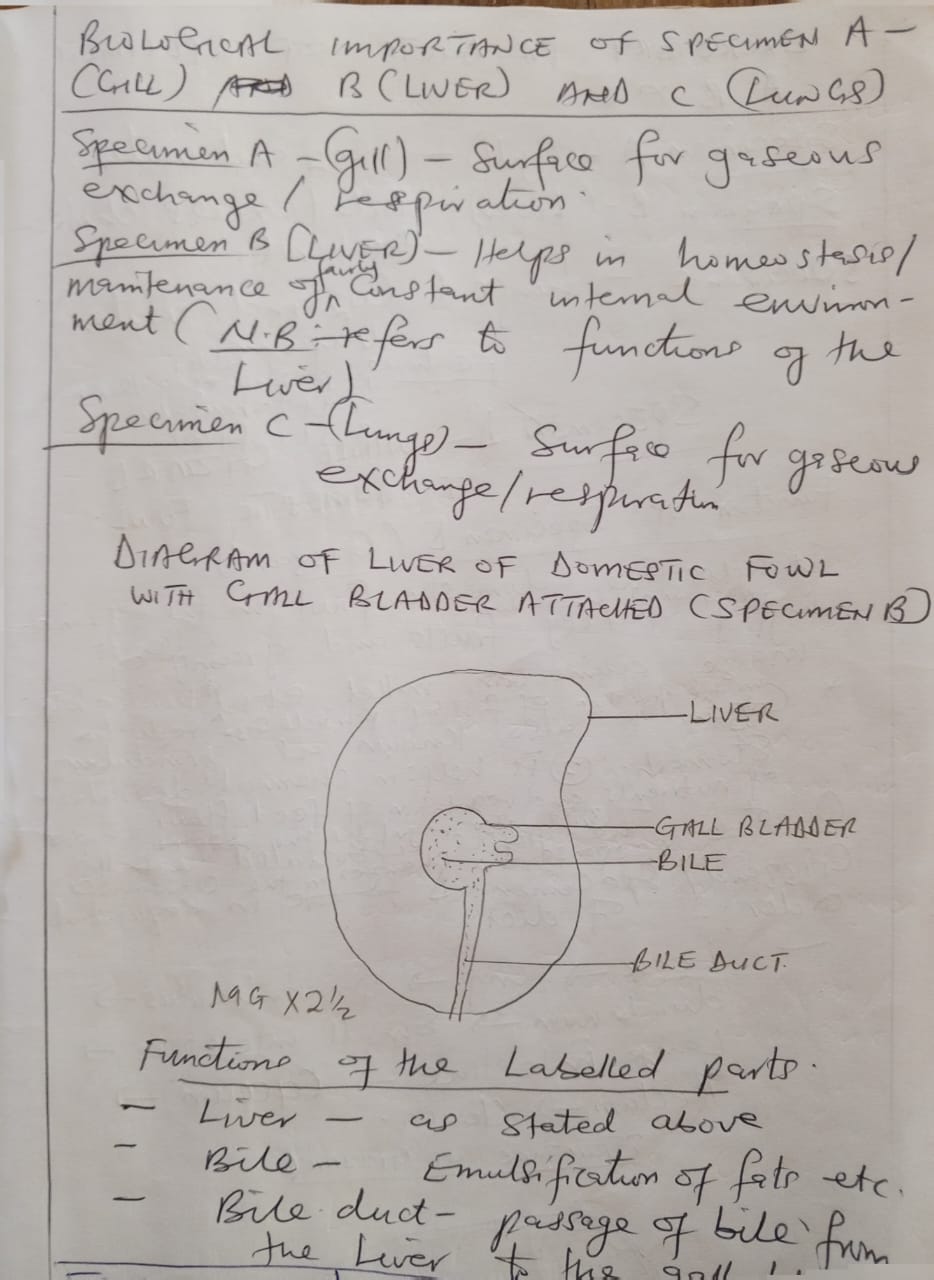 BIOLOGICAL IMPORTANCE OF SPECIMEN A -
(GILL) AND B (LIVER) AND C (LUNGS)
Specimen A - (gill) - Surface for gaseous
exchange / respiration.
Specimen B (LIVER) - Helps in homeostasis/
maintenance of fairly constant internal environ-
ment ( N.B :- refers to functions of the
Liver)
Specimen C - (Lungs) - Surface for gaseous
exchange/respiration
DIAGRAM OF LIVER OF DOMESTIC FOWL
WITH GALL BLADDER ATTACHED (SPECIMEN B)
LIVER
GALL BLADDER
BILE
BILE DUCT.
MG X 2½
Functions of the Labelled parts.
- Liver - as stated above
- Bile - Emulsification of fats etc.
- Bile duct - passage of bile from
the Liver to the gall